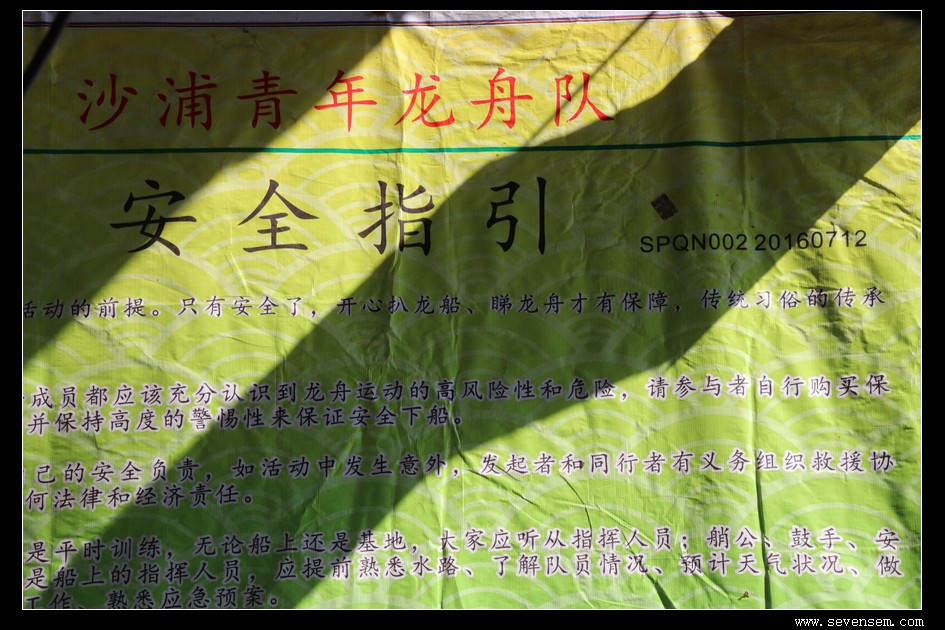 沙浦青年龙舟队
安全指引
SPQN002 20160712
活动的前提。只有安全了，开心扒龙船、睇龙舟才有保障，传统习俗的传承
成员都应该充分认识到龙舟运动的高风险性和危险，请参与者自行购买保
并保持高度的警惕性来保证安全下船。
己的安全负责，如活动中发生意外，发起者和同行者有义务组织救援协
何法律和经济责任。
是平时训练，无论船上还是基地，大家应听从指挥人员；艄公、鼓手、安
是船上的指挥人员，应提前熟悉水路、了解队员情况、预计天气状况、做
工作、熟悉应急预案。
www.sevensem.com